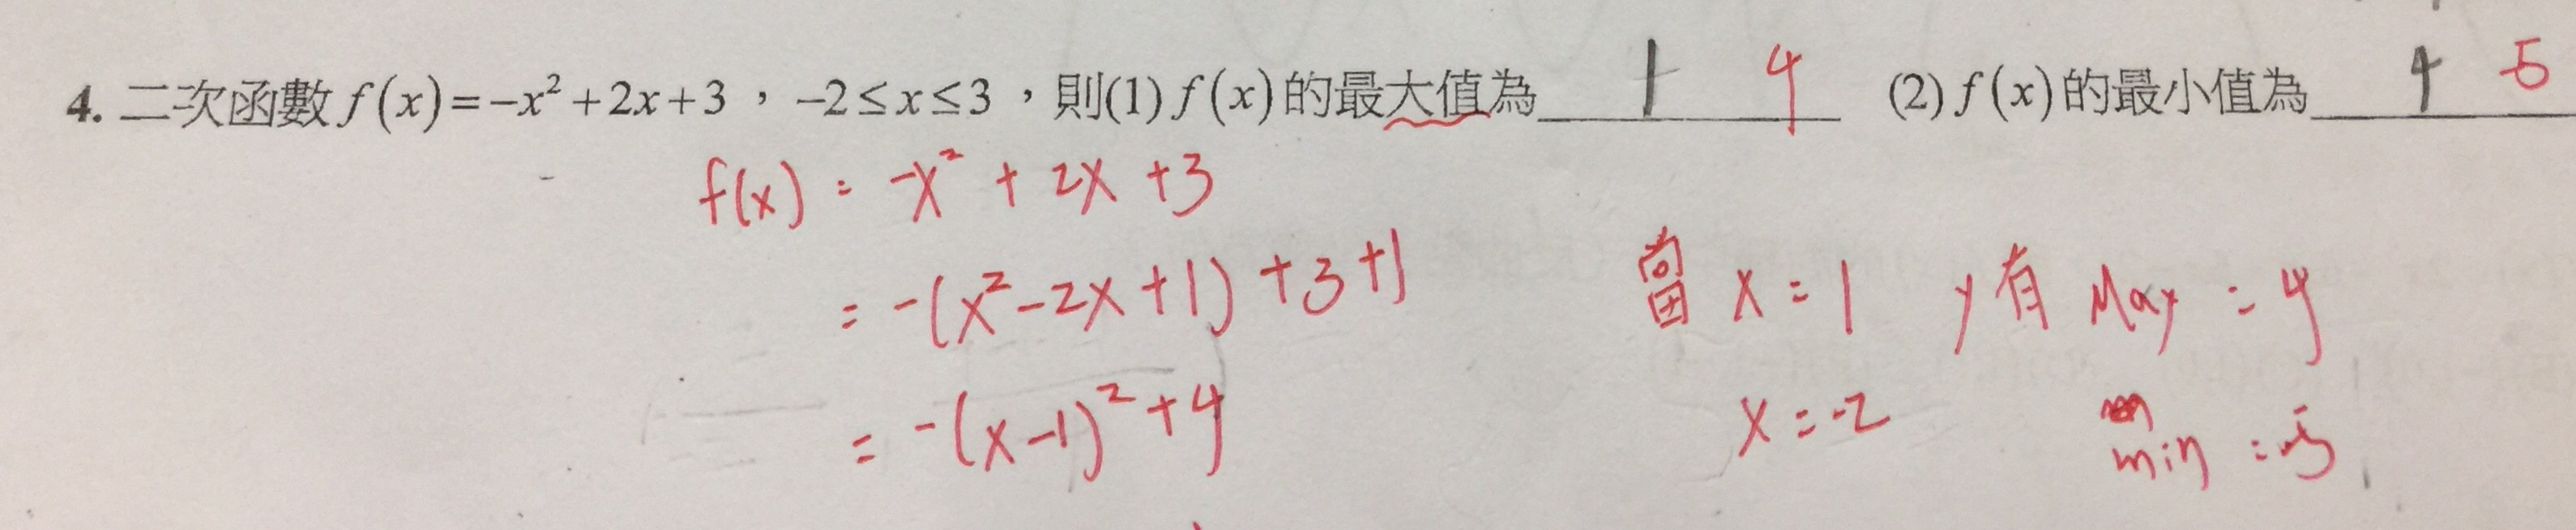 4. 二次函數 f(x)=-x²+2x+3，-2≤x≤3，則(1) f(x)的最大值為 1 4 (2) f(x)的最小值為 4 -5
f(x) = -x² + 2x +3
= -(x²-2x+1) +3+1
= -(x-1)² +4
當 x=1 y有 Max = 4
x=-2 min =-5